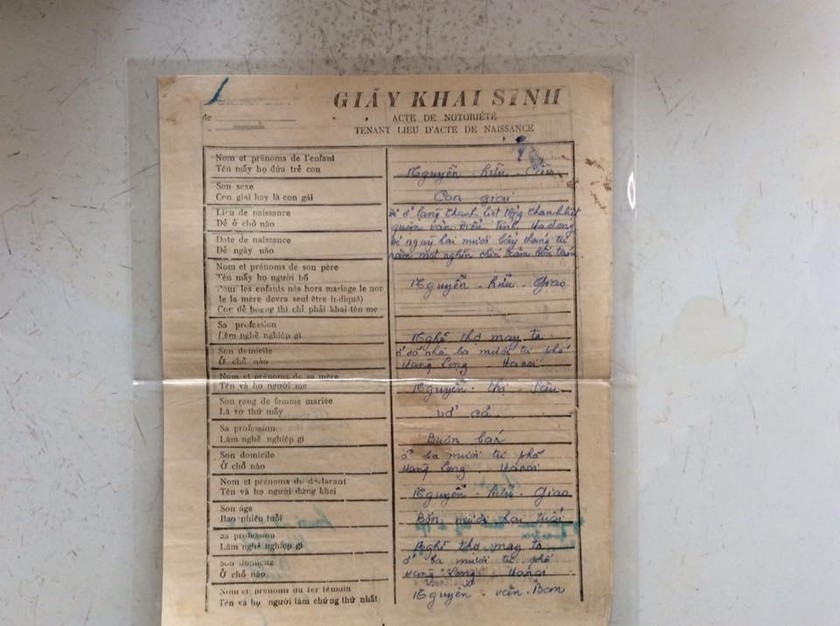 GIẤY KHAI SINH
de
ACTE DE NOTORIÉTÉ
TENANT LIEU D'ACTE DE NAISSANCE
Nom et prénoms de l'enfant
Tên mấy họ đứa trẻ con
Nguyễn Hữu
Son sexe
Con giai hay là con gái
Con giai
Lieu de naissance
Đẻ ở chỗ nào
Date de naissance
Đẻ ngày nào
Đẻ ở làng thanh liệt tổng thanh liệt
tỉnh Hadong
hai mươi bảy tháng tư
năm một nghìn chín trăm bốn
Nom et prénoms de son père
Tên mấy họ người bố
Pour les enfants nés hors mariage le nom
de la mère devra seul être indiqué)
Con đẻ hoang thì chỉ phải khai tên mẹ
Nguyễn - Hữu - Giao
Sa profession
Làm nghề nghiệp gì
Nghề thợ may ta
Son domicile
Ở chỗ nào
ở số nhà ba mươi tư phố
Hanoi
Nom et prénoms de sa mère
Tên và họ người mẹ
Nguyễn - thị
Son rang de femme mariée
Là vợ thứ mấy
vợ cả
Sa profession
Làm nghề nghiệp gì
Buôn bán
Son domicile
Ở chỗ nào
ở ba mươi tư phố
Hanoi
Nom et prénoms du déclarant
Tên và họ người đứng khai
Nguyễn - Hữu - Giao
Son âge
Bao nhiêu tuổi
Bốn mươi hai tuổi
Sa profession
Làm nghề nghiệp gì
Nghề thợ may ta
Son domicile
Ở chỗ nào
ở ba mươi tư phố
Hanoi
Nom et prénoms du 1er témoin
Tên và họ người làm chứng thứ nhất
Nguyễn - văn